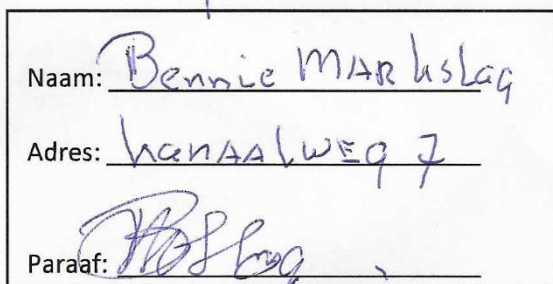 Naam: Bennie MARkslag
Adres: kanaalweg 7
Paraaf: